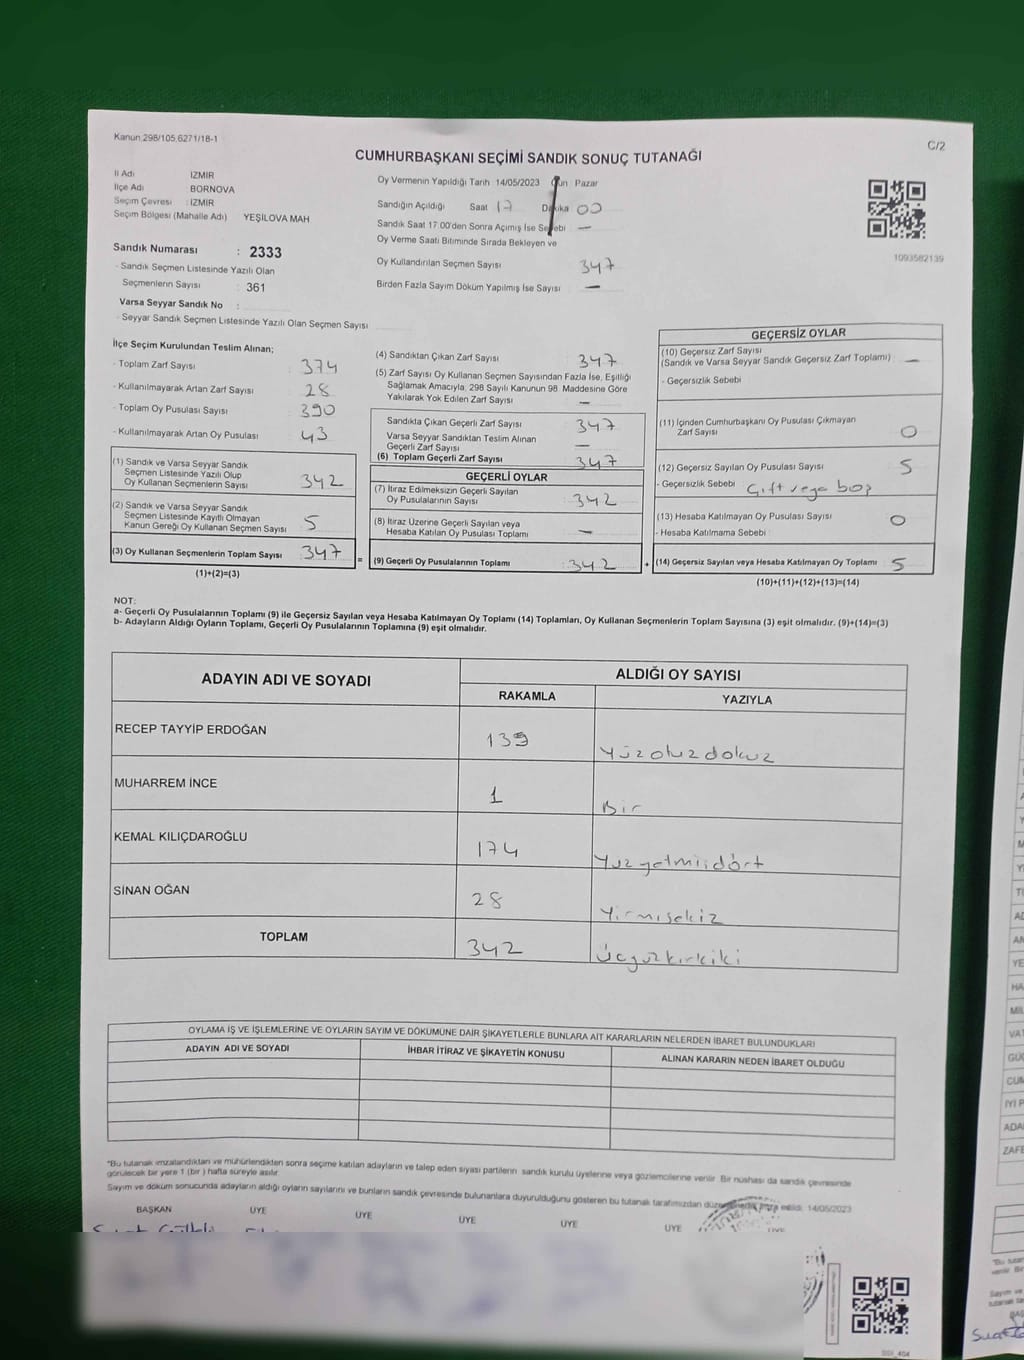 Kanun 298/105,6271/18-1
C/2
CUMHURBAŞKANI SEÇİMİ SANDIK SONUÇ TUTANAĞI
İl Adı İZMİR
İlçe Adı BORNOVA
Seçim Çevresi : İZMİR
Seçim Bölgesi (Mahalle Adı) YEŞİLOVA MAH
Sandık Numarası : 2333
- Sandık Seçmen Listesinde Yazılı Olan
Seçmenlerin Sayısı : 361
Varsa Seyyar Sandık No :
- Seyyar Sandık Seçmen Listesinde Yazılı Olan Seçmen Sayısı
Oy Vermenin Yapıldığı Tarih 14/05/2023 Gün Pazar
Sandığın Açıldığı Saat 17 Dakika 00
Sandık Saat 17.00'den Sonra Açımış İse Sebebi —
Oy Verme Saati Bitiminde Sırada Bekleyen ve
Oy Kullandırılan Seçmen Sayısı 347
Birden Fazla Sayım Döküm Yapılmış İse Sayısı —
1093582139
İlçe Seçim Kurulundan Teslim Alınan;
- Toplam Zarf Sayısı : 374
- Kullanılmayarak Artan Zarf Sayısı : 28
- Toplam Oy Pusulası Sayısı : 390
- Kullanılmayarak Artan Oy Pusulası : 43
(1) Sandık ve Varsa Seyyar Sandık
Seçmen Listesinde Yazılı Olup
Oy Kullanan Seçmenlerin Sayısı : 342
(2) Sandık ve Varsa Seyyar Sandık
Seçmen Listesinde Kayıtlı Olmayan
Kanun Gereği Oy Kullanan Seçmen Sayısı : 5
(3) Oy Kullanan Seçmenlerin Toplam Sayısı : 347 =
(1)+(2)=(3)
(4) Sandıktan Çıkan Zarf Sayısı : 347
(5) Zarf Sayısı Oy Kullanan Seçmen Sayısından Fazla İse, Eşitliği
Sağlamak Amacıyla, 298 Sayılı Kanunun 98. Maddesine Göre
Yakılarak Yok Edilen Zarf Sayısı : —
Sandıkta Çıkan Geçerli Zarf Sayısı : 347
Varsa Seyyar Sandıktan Teslim Alınan
Geçerli Zarf Sayısı : —
(6) Toplam Geçerli Zarf Sayısı : 347
GEÇERLİ OYLAR
(7) İtiraz Edilmeksizin Geçerli Sayılan
Oy Pusulalarının Sayısı : 342
(8) İtiraz Üzerine Geçerli Sayılan veya
Hesaba Katılan Oy Pusulası Toplamı : —
(9) Geçerli Oy Pusulalarının Toplamı : 342 +
GEÇERSİZ OYLAR
(10) Geçersiz Zarf Sayısı
(Sandık ve Varsa Seyyar Sandık Geçersiz Zarf Toplamı) : —
- Geçersizlik Sebebi
(11) İçinden Cumhurbaşkanı Oy Pusulası Çıkmayan
Zarf Sayısı : 0
(12) Geçersiz Sayılan Oy Pusulası Sayısı : 5
- Geçersizlik Sebebi : Çift veya boş
(13) Hesaba Katılmayan Oy Pusulası Sayısı : 0
- Hesaba Katılmama Sebebi :
(14) Geçersiz Sayılan veya Hesaba Katılmayan Oy Toplamı : 5
(10)+(11)+(12)+(13)=(14)
NOT:
a- Geçerli Oy Pusulalarının Toplamı (9) ile Geçersiz Sayılan veya Hesaba Katılmayan Oy Toplamı (14) Toplamları, Oy Kullanan Seçmenlerin Toplam Sayısına (3) eşit olmalıdır. (9)+(14)=(3)
b- Adayların Aldığı Oyların Toplamı, Geçerli Oy Pusulalarının Toplamına (9) eşit olmalıdır.
ADAYIN ADI VE SOYADI ALDIĞI OY SAYISI
RAKAMLA YAZIYLA
RECEP TAYYİP ERDOĞAN 139 Yüzotuzdokuz
MUHARREM İNCE 1 Bir
KEMAL KILIÇDAROĞLU 174 Yüzyetmişdört
SİNAN OĞAN 28 Yirmisekiz
TOPLAM 342 Üçyüzkırkiki
OYLAMA İŞ VE İŞLEMLERİNE VE OYLARIN SAYIM VE DÖKÜMÜNE DAİR ŞİKAYETLERLE BUNLARA AİT KARARLARIN NELERDEN İBARET BULUNDUKLARI
ADAYIN ADI VE SOYADI İHBAR İTİRAZ VE ŞİKAYETİN KONUSU ALINAN KARARIN NEDEN İBARET OLDUĞU
*Bu tutanak imzalandıktan ve mühürlendikten sonra seçime katılan adayların ve talep eden siyasi partilerin sandık kurulu üyelerine veya gözlemcilerine verilir. Bir nüshası da sandık çevresinde
görülecek bir yere 1 (bir ) hafta süreyle asılır.
Sayım ve döküm sonucunda adayların aldığı oyların sayılarını ve bunların sandık çevresinde bulunanlara duyurulduğunu gösteren bu tutanak tarafımızdan edildi. 14/05/2023
BAŞKAN ÜYE ÜYE ÜYE ÜYE ÜYE ÜYE